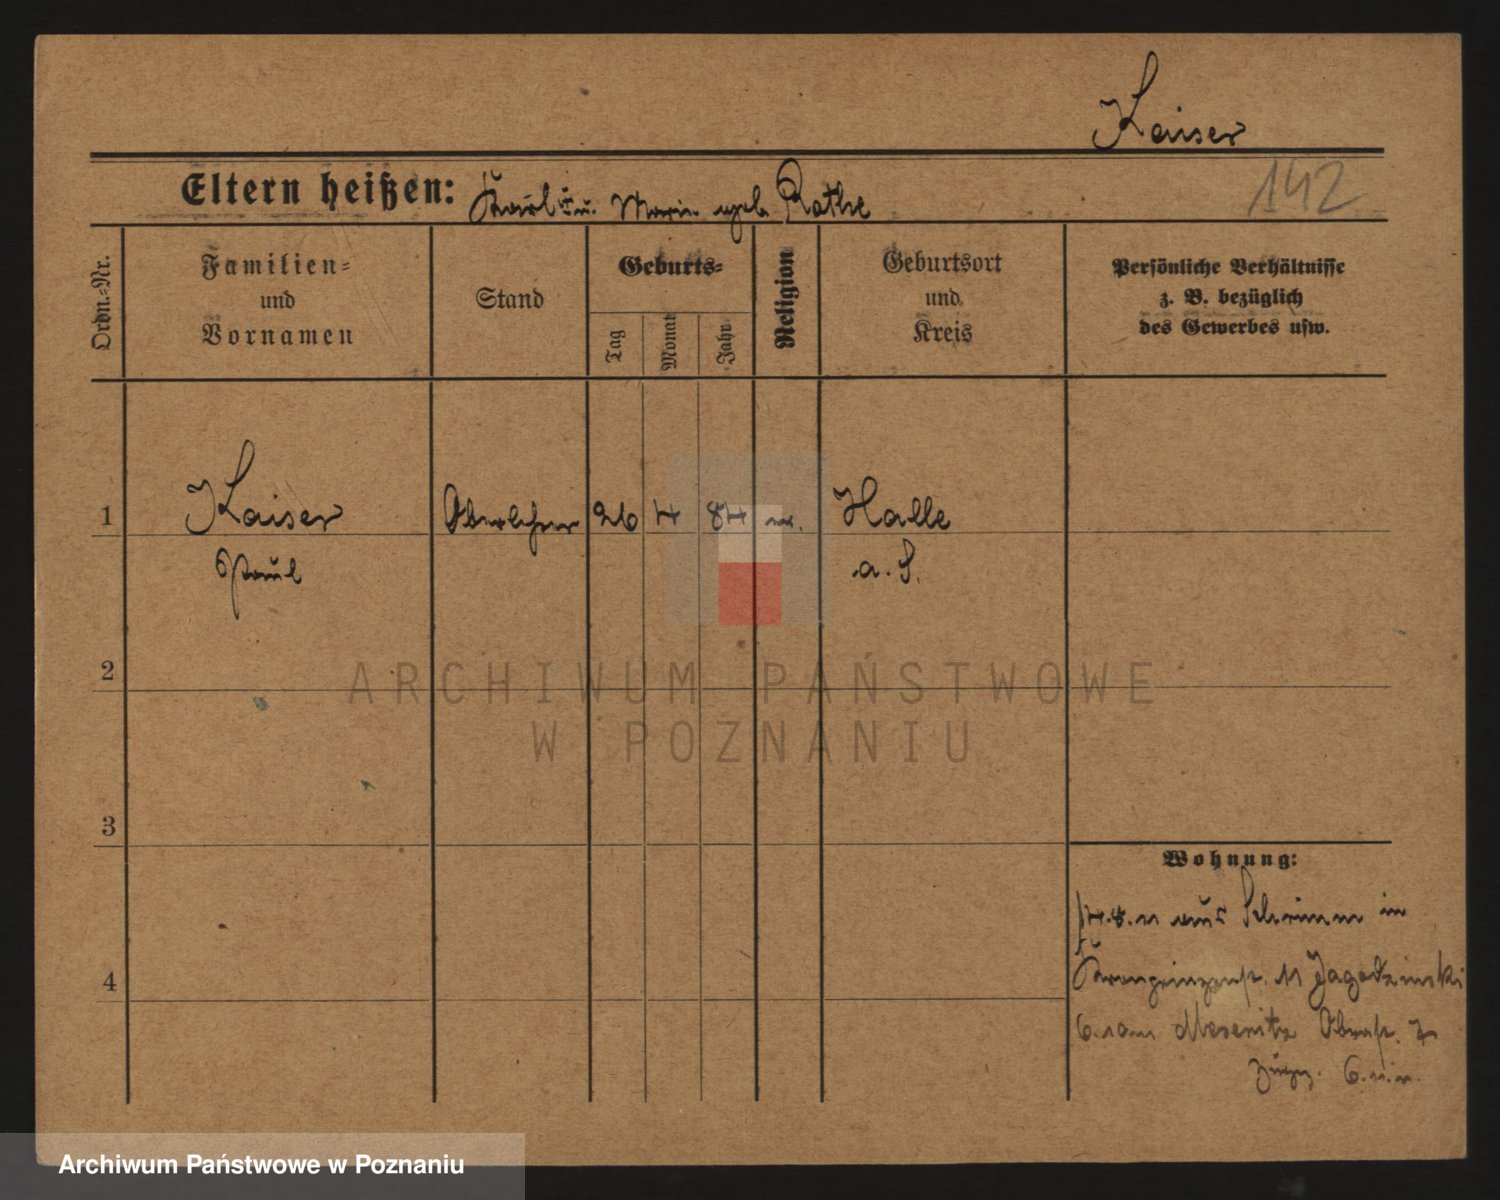 Kaiser
Eltern heißen: Karl u. Marie geb. Rothe
142
Ordn.=Nr.
Familien=
und
Vornamen
Stand
Geburts=
Tag
Monat
Jahr
Religion
Geburtsort
und
Kreis
Persönliche Verhältnisse
z. B. bezüglich
des Gewerbes usw.
1 Kaiser Oberlehrer 26 4 84 ev. Halle
Paul a. S.
2
3
4
Wohnung:
aus Schrimm in
Kronprinzenst. 11 Jagodzinski
Meseritz Obrast. 7
ARCHIWUM PAŃSTWOWE
W POZNANIU
Archiwum Państwowe w Poznaniu